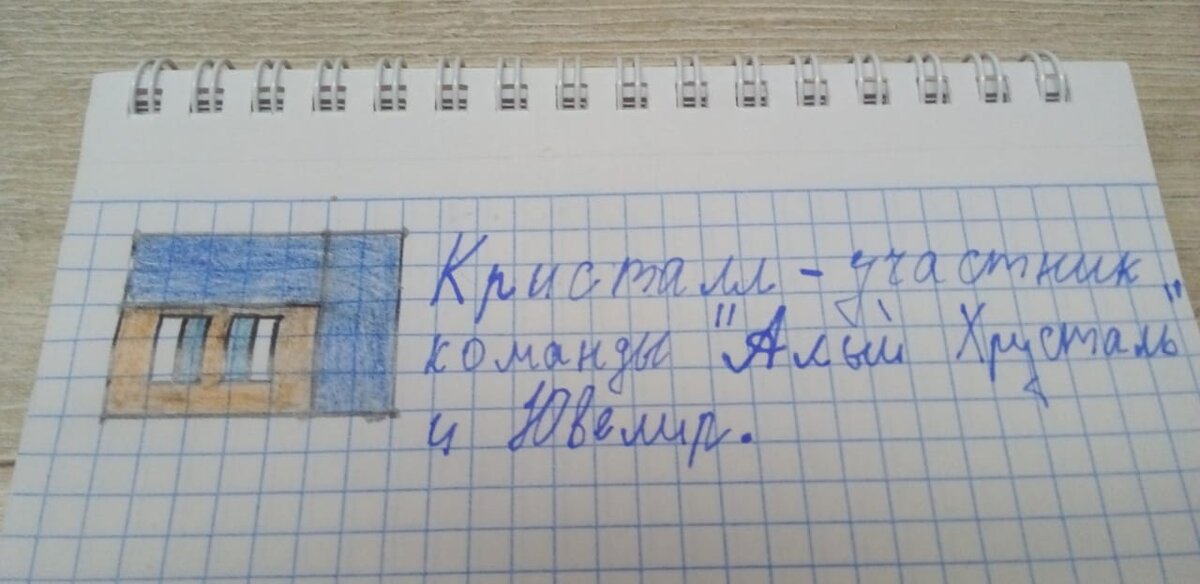 Кристалл - участник
команды "Алый Хрусталь"
и Ювелир.